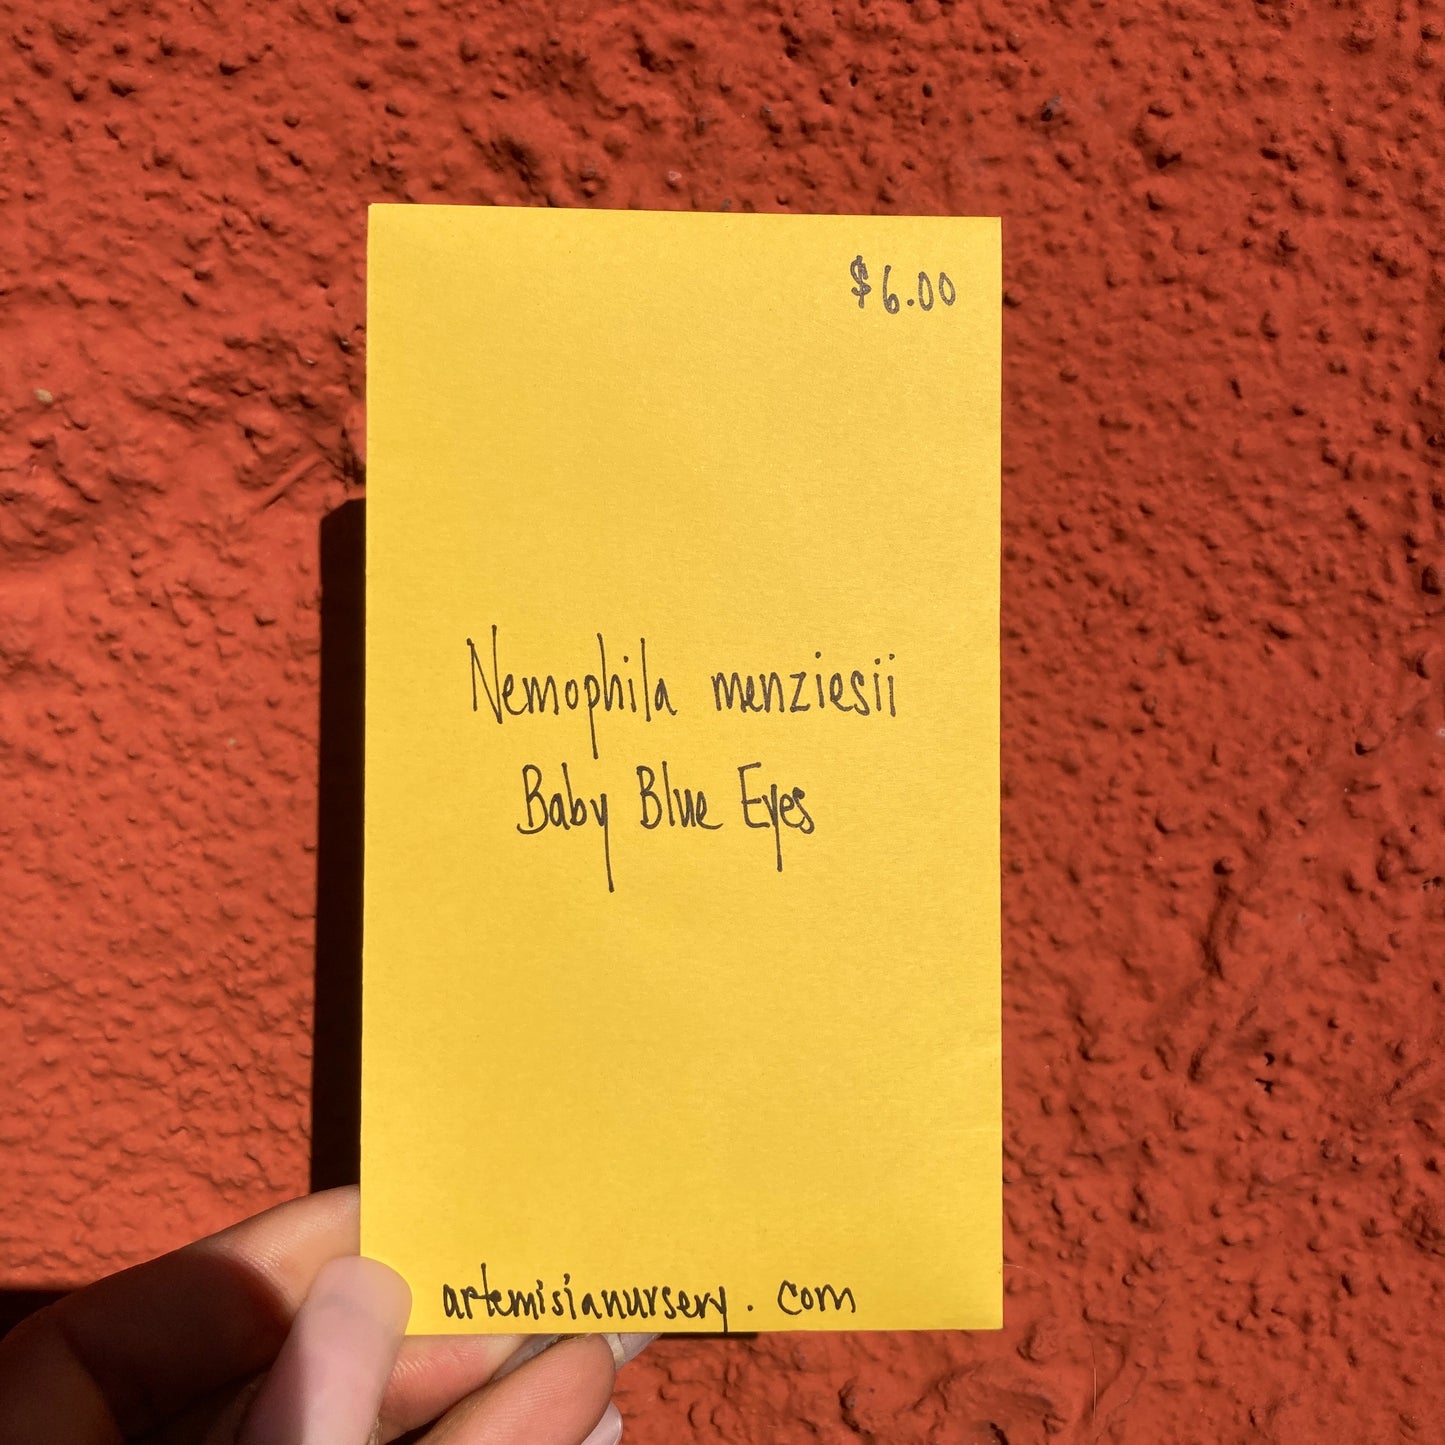 $6.00
Nemophila menziesii
Baby Blue Eyes
artemisianursery.com